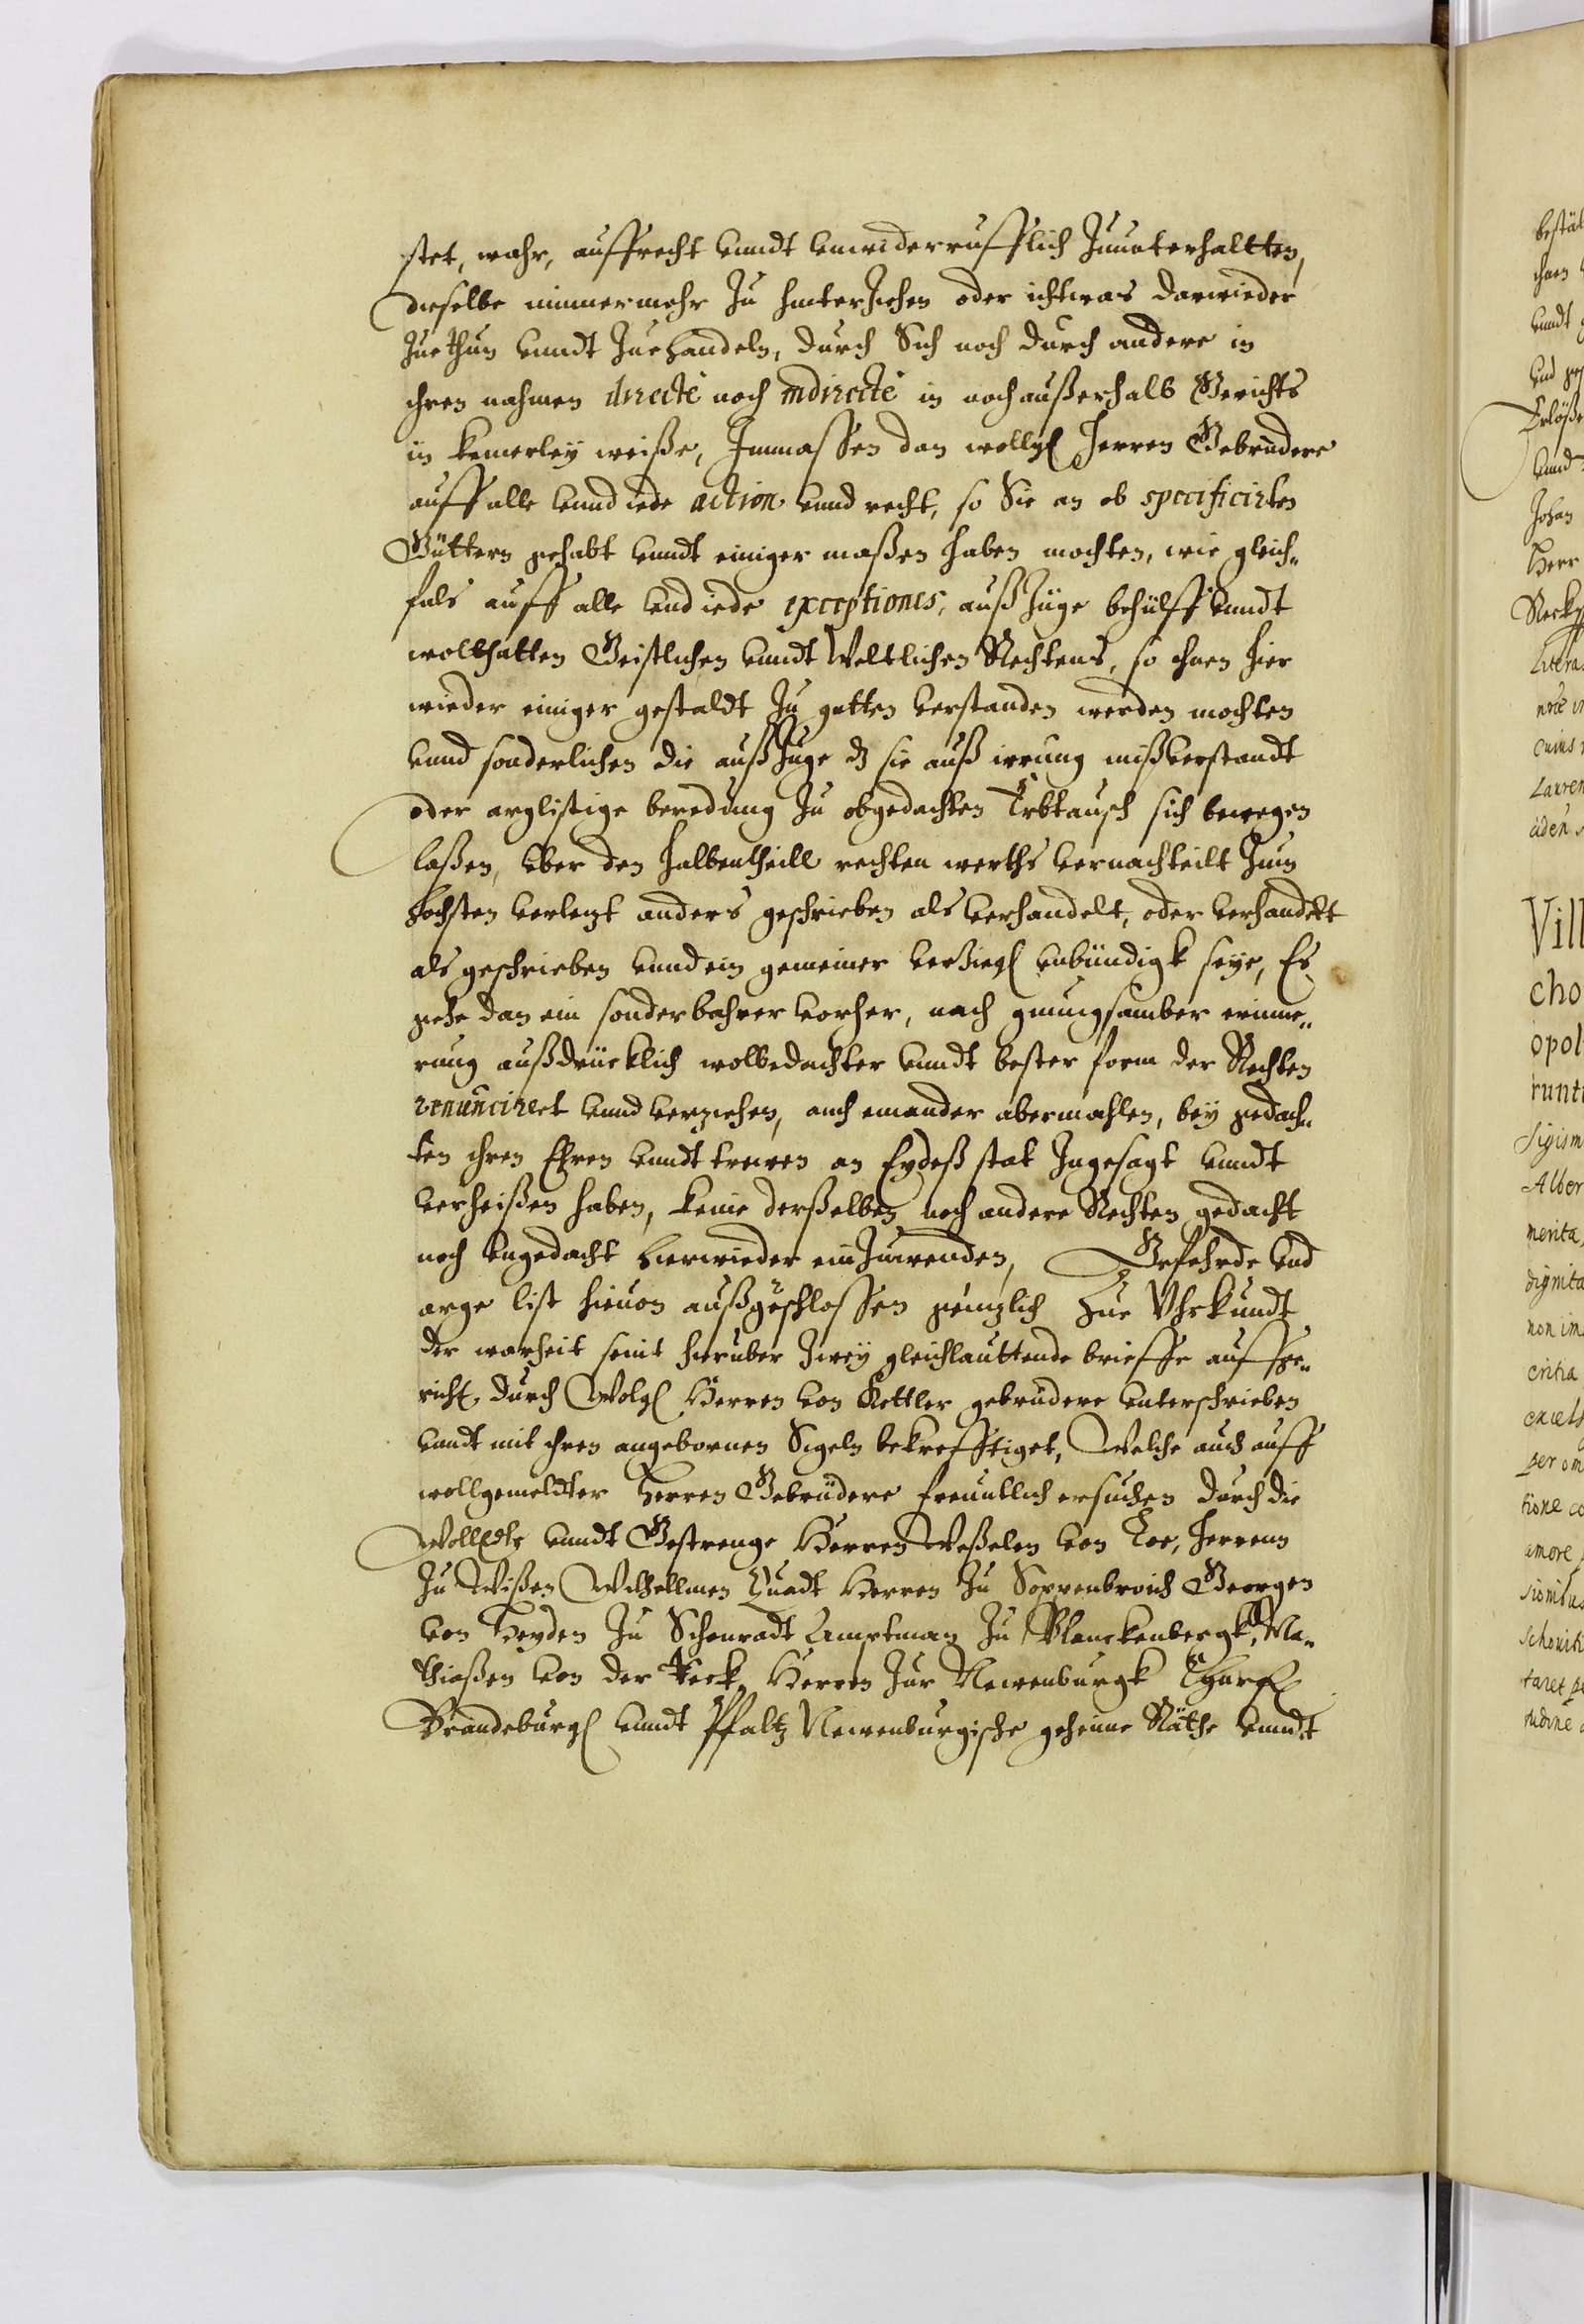 stet, wahr, auffrecht vnndt vnwiderrufflich Zuunterhaltten,
dieselbe nimmermehr Zu hinterZiehen oder ichtwas darwieder
Zuethun vnndt Zuehandeln, durch Sich noch durch andere in
ihren nahmen directé noch indirecté in noch außerhalb Gerichts
in keinerley weiße, Immassen dan wollgl Herren Gebrüdere
auff alle vnnd iede action vnnd recht, so Sie an ob specificirten
Güttern gehabt vnndt einiger maßen haben mochten, wie gleich-
fals auff alle vnd iede exceptiones, außZüge behülff vnndt
wollthatten Geistlichen vnndt Weltlichen Rechtens, so ihnen hier
wieder einiger gestaldt Zu gutten verstanden werden mochten
vnnd sonderlichen die außZuge dz sie auß irrung mißverstandt
oder arglistige beredung Zu obgedachten Erbtausch sich bewegen
laßen, vber den halbentheill rechten werths vernachteilt Zum
hochsten verletzt anders geschrieben als verhandelt, oder verhandelt
als geschrieben vnnd ein gemeiner verZiegl vnbündigk seye, Es
gehe dan ein sonderbahrer vorher, nach gnungsamber erinne-
rung außdrücklich wolbedachter vnndt bester form der Rechten
renuncirert vnnd verziehen, auch einander abermahlen, bey gedach-
ten ihren Ehren vnndt trewen an Eydeß stat Zugesagt vnndt
verheißen haben, keine derßelben noch andere Rechten gedacht
noch vngedacht hierwieder einZuwenden, Gefehrde vnd
arge list hieuon außgeschlossen gentzlich Zue Vhrkundt
der warheit seint hieruber Zwey gleichlauttende brieffe auffge-
richt, durch Wolgl Herren von Kettler gebrüdere vnterschrieben
vnndt mit ihren angebornen Sigeln bekrefftiget, Welche auch auff
wollgemeldter Herren Gebrüdere freuntlich ersuchen durch die
WollEdle vnndt Gestrenge Herren Weßelen von Loe, Herrenn
Zu Wißen Wilhellmen Quadt Herren Zu Soppenbroich Georgen
von Heyden Zu Schonradt Amptman Zu Blanckenbergk, Ma-
thiaßen von der Reck, Herren Zur Newenburgk Churfl
Brandeburgl vnndt Pfaltz Newenburgische geheime Räthe vnndt